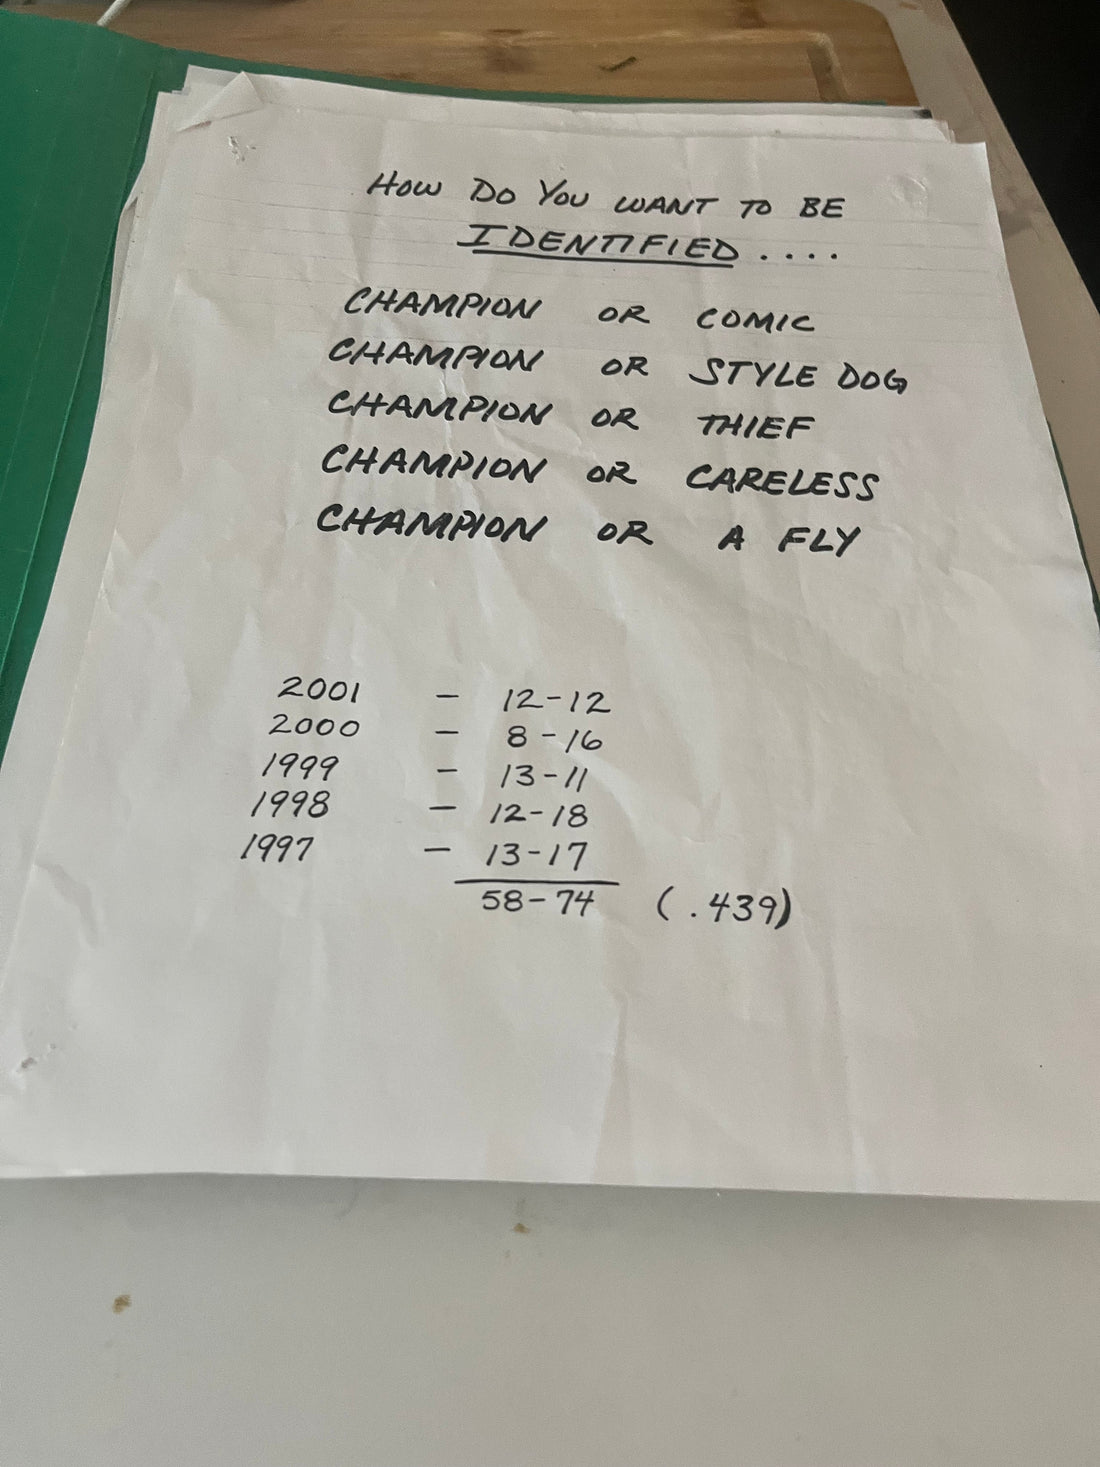 HOW DO YOU WANT TO BE
IDENTIFIED ....
CHAMPION OR COMIC
CHAMPION OR STYLE DOG
CHAMPION OR THIEF
CHAMPION OR CARELESS
CHAMPION OR A FLY
2001 - 12-12
2000 - 8-16
1999 - 13-11
1998 - 12-18
1997 - 13-17
58-74 (.439)